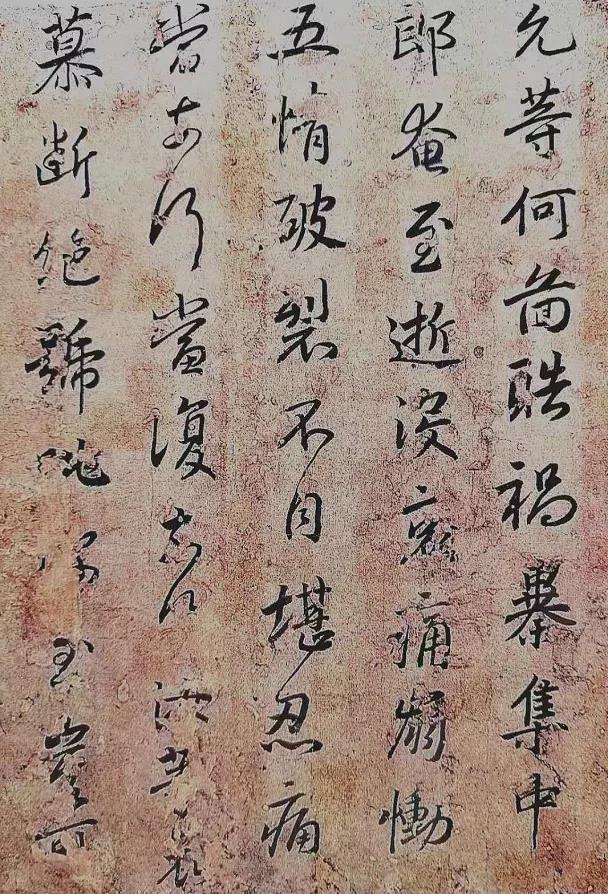 允等何啚酷禍暴集中
郎奄至逝没哀痛崩慟
五情破裂不自堪忍痛
當奈何當復奈何汝等哀
慕斷絕號咷深至豈可